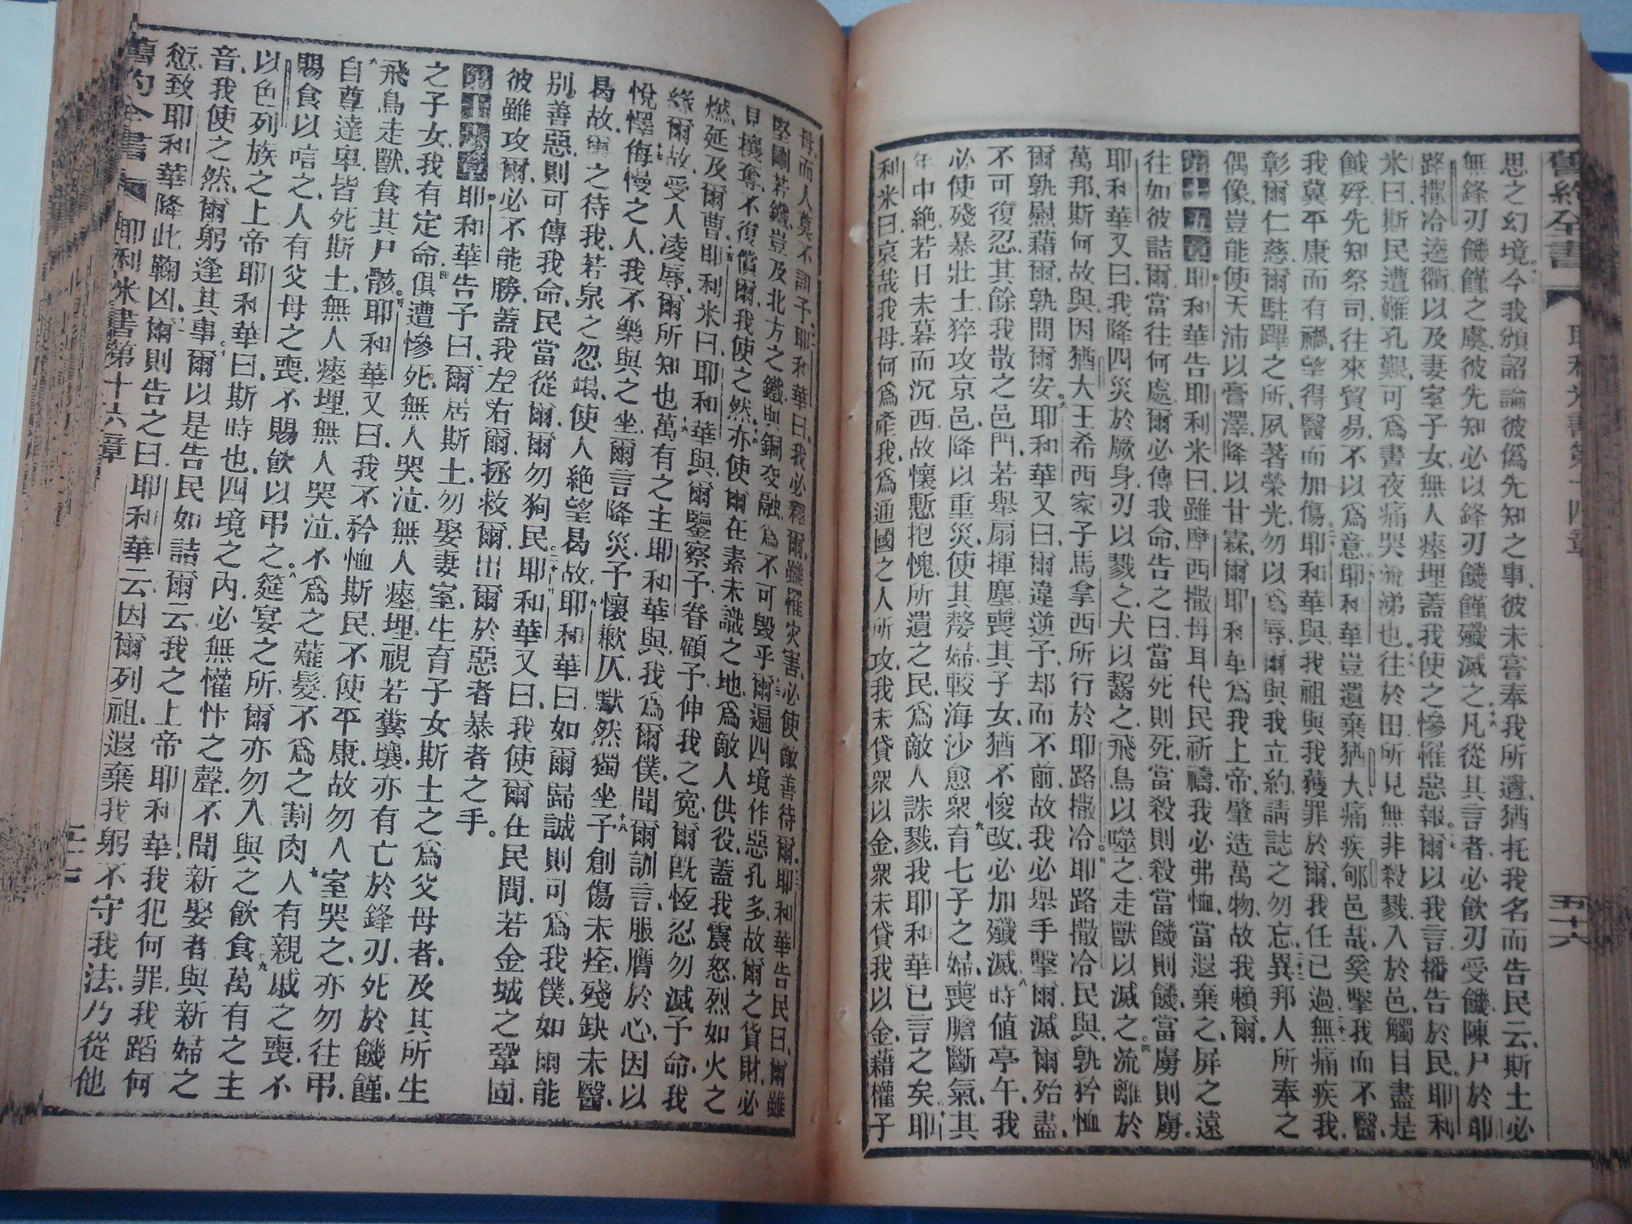 舊約全書 耶利米書第十四章 五十六
思之幻境今我頒詔論彼僞先知之事彼未嘗奉我所遣猶托我名而告民云斯土必
無鋒刃饑饉之虞彼先知必以鋒刃饑饉殲滅之凡從其言者必飲刃受饑陳尸於耶
路撒冷逵衢以及妻室子女無人瘞埋蓋我使之慘罹惡報爾以我言播告於民耶利
米曰斯民遭難孔艱可爲晝夜痛哭流涕也往於田所見無非殺戮入於邑觸目盡是
餓殍先知祭司往來貿易不以爲意耶和華豈遺棄猶大痛疾郇邑哉奚擊我而不醫
我冀平康而有禍望得醫而加傷耶和華與我祖與我獲罪於爾我任已過無痛疾我
彰爾仁慈爾駐蹕之所夙著榮光勿以爲辱爾與我立約請誌之勿忘異邦人所奉之
偶像豈能使天沛以膏澤降以甘霖爾耶和華爲我上帝肇造萬物故我賴爾
第十五章耶和華告耶利米曰雖摩西撒母耳代民祈禱我必弗恤當遐棄之屏之遠
往如彼詰爾當往何處爾必傳我命告之曰當死則死當殺則殺當饑則饑當虜則虜
耶和華又曰我降四災於厥身刃以戮之犬以齧之飛鳥以噬之走獸以滅之流離於
萬邦斯何故與因猶大王希西家子馬拿西所行於耶路撒冷耶路撒冷民與孰矜恤
爾孰慰藉爾孰問爾安耶和華又曰爾違逆予却而不前故我必舉手擊爾滅爾殆盡
不可復忍其餘我散之邑門若舉扇揮塵喪其子女猶不悛改必加殲滅時値亭午我
必使殘暴壯士猝攻京邑降以重災使其嫠婦較海沙愈衆育七子之婦喪膽斷氣其
年中絶若日未暮而沉西故懷慙抱愧所遺之民爲敵人誅戮我耶和華已言之矣耶
利米曰哀哉我母何爲產我爲通國之人所攻我未貸衆以金衆未貸我以金藉權子
母而人莫不詛予耶和華曰我必釋爾雖罹災害必使敵善待爾耶和華告民曰爾雖
堅剛若鐵豈及北方之鐵與銅交融爲不可毀乎爾遍四境作惡孔多故爾之貨財必
見攘奪不復償爾我使之然亦使爾在素未識之地爲敵人供役蓋我震怒烈如火之
燃延及爾曹耶利米曰耶和華與爾鑒察予眷顧予伸我之寃爾旣恆忍勿滅予命我
緣爾故受人凌辱爾所知也萬有之主耶和華與我爲爾僕聞爾訓言服膺於心因以
悅懌侮慢之人我不樂與之坐爾言降災予懷歉仄默然獨坐予創傷未痊殘缺未醫
曷故爾之待我若泉之忽竭使人絶望曷故耶和華曰如爾歸誠則可爲我僕如爾能
別善惡則可傳我命民當從爾爾勿狥民耶和華又曰我使爾在民間若金城之鞏固
彼雖攻爾必不能勝蓋我左右爾拯救爾出爾於惡者暴者之手
第十六章耶和華告予曰爾居斯土勿娶妻室生育子女斯土之爲父母者及其所生
之子女我有定命俱遭慘死無人哭泣無人瘞埋視若糞壤亦有亡於鋒刃死於饑饉
飛鳥走獸食其尸骸耶和華又曰我不矜恤斯民不使平康故勿入室哭之亦勿往弔
自尊達卑皆死斯土無人瘞埋無人哭泣不爲之薙髮不爲之割肉人有親戚之喪不
賜食以唁之人有父母之喪不賜飲以弔之筵宴之所爾亦勿入與之飲食萬有之主
以色列族之上帝耶和華曰斯時也四境之內必無懽忭之聲不聞新娶者與新婦之
音我使之然爾躬逢其事爾以是告民如詰爾云我之上帝耶和華我犯何罪我蹈何
愆致耶和華降此鞠凶爾則告之曰耶和華云因爾列祖遐棄我躬不守我法乃從他
舊約全書 耶利米書第十六章 五十七